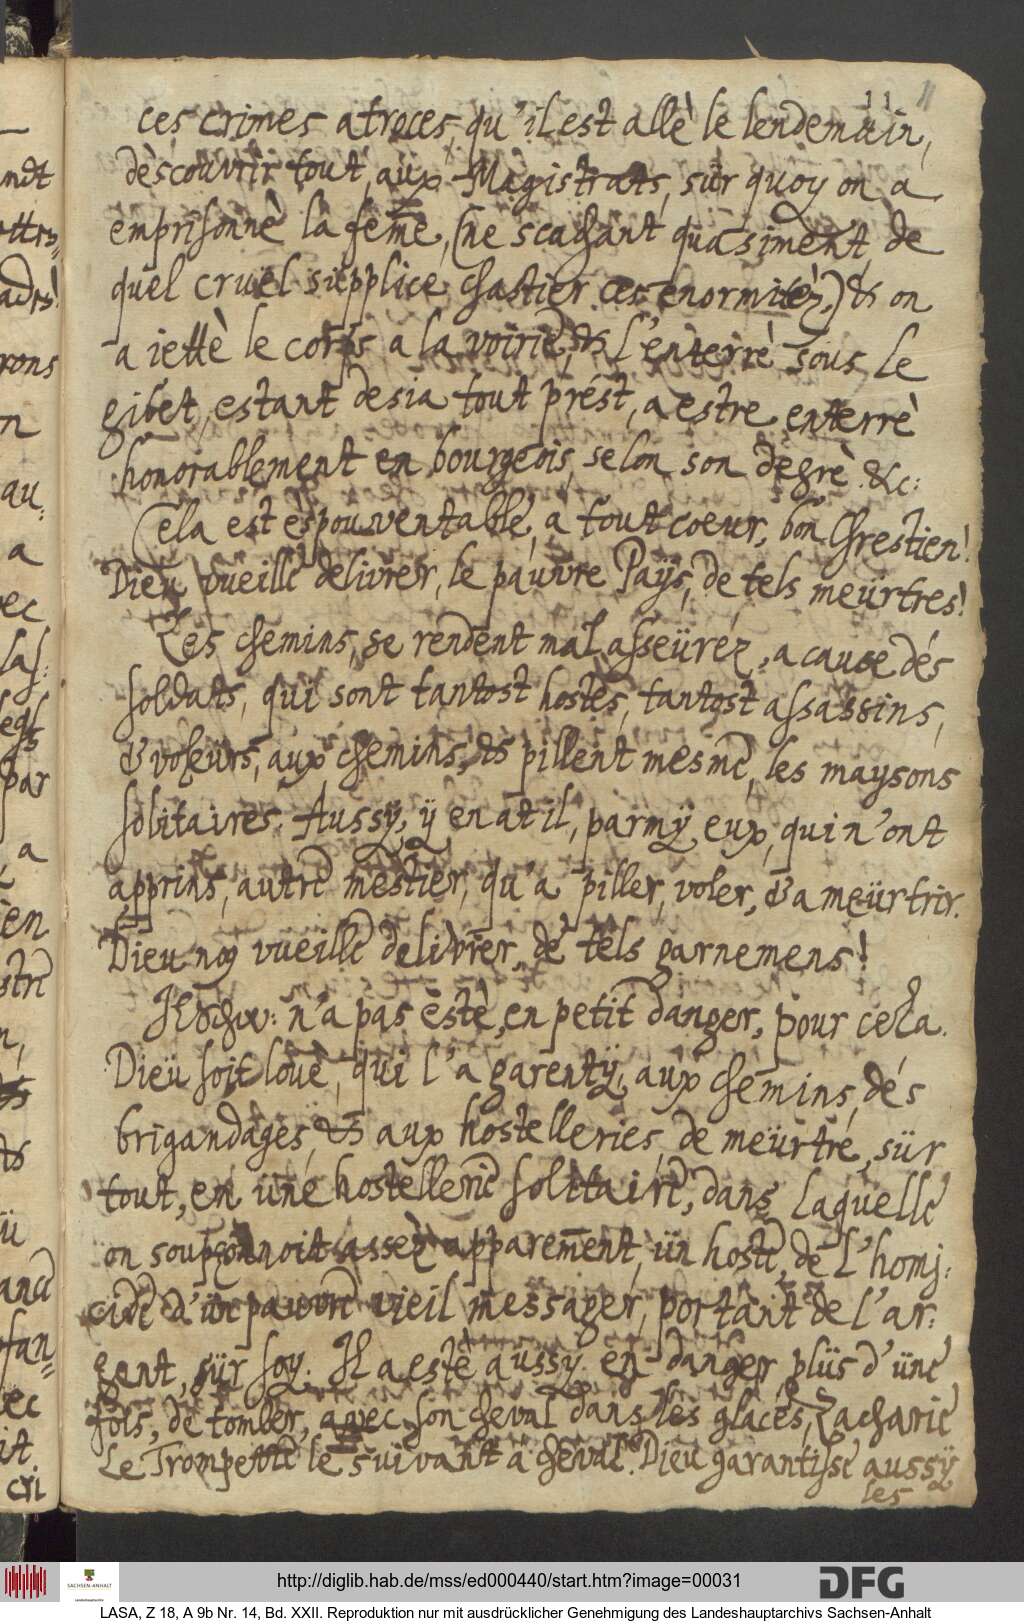 11. 11
ces crimes atroces, qu'il est allè le lendemain,
dèscouvrir tout, aux Magistrats, sür quoy on a
emprisonnè la fem̅e, (ne scachant quasiment, de
quel cruel süpplice chastier ces enormitèz,) & on
a iettè le corps a la voirie, & l'enterrè sous le
gibet, estant desia tout prést, a estre enterrè
honorablement en bourgeois, selon son degrè. &c:
Cela est éspouventable, a tout coeur, bon Chrestien!
Dieu vueille delivrer, le pauvre Païs, de tels meürtres!
Les chemins, se rendent mal asseüréz, a cause dés
soldats, qui sont tantost hostes, tantost assassins,
& voleurs, aux chemins, & pillent mesme, les maysons
solitaires. Aussy, ÿ en at il, parmÿ eux, qui n'ont
apprins, autre mestier, qu'a piller, voler, & a meürtrir.
Dieu no9 vueille delivrer, de tels garnemens!
H Schw: n'a pas èstè, en petit danger, pour cela.
Dieü soit louè, qui l'a garentÿ, aux chemins, dés
brigandages, & aux hostelleries, de meürtre, sür
tout, en üne hostellerie solitaire, dans laquelle
on soupçonnoit assez apparem̅ent, ün hoste, de l'homi¸
cide d'ün pauvre vieil messager, portant de l'ar¸
gent, sür soy. Il a estè aussy en danger, plüs d'üne
fois, de tomber, avec son cheval dans les glaces, Zacharie
Le Trompette le suivant a cheval. Dieu garantisse aussÿ
les
ndt
rons
n
au¸
a
ec
par
a
en
stre
n,
&
ü
ec
cri
http://diglib.hab.de/mss/ed000440/start.htm?image=00031
SACHSEN-ANHALT
DFG
LASA, Z 18, A 9b Nr. 14, Bd. XXII. Reproduktion nur mit ausdrücklicher Genehmigung des Landeshauptarchivs Sachsen-Anhalt